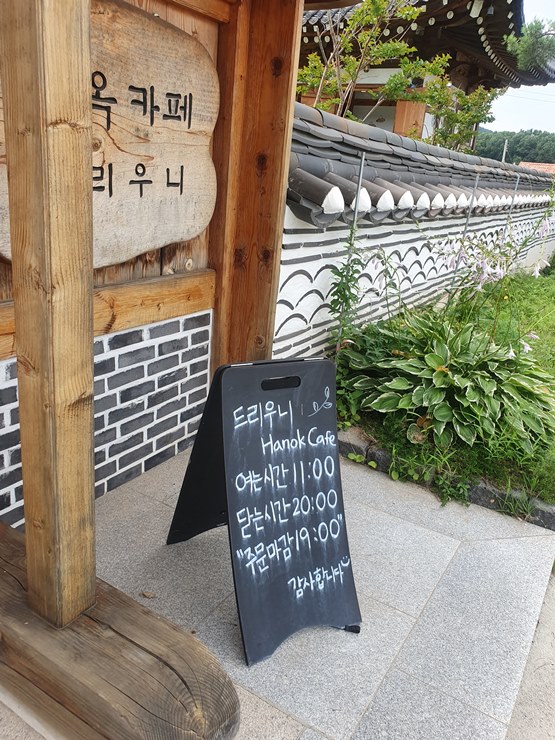 옥카페
리우니
드리우니
Hanok Cafe
여는시간 11:00
닫는시간 20:00
"주문마감 19:00"
감사합니다